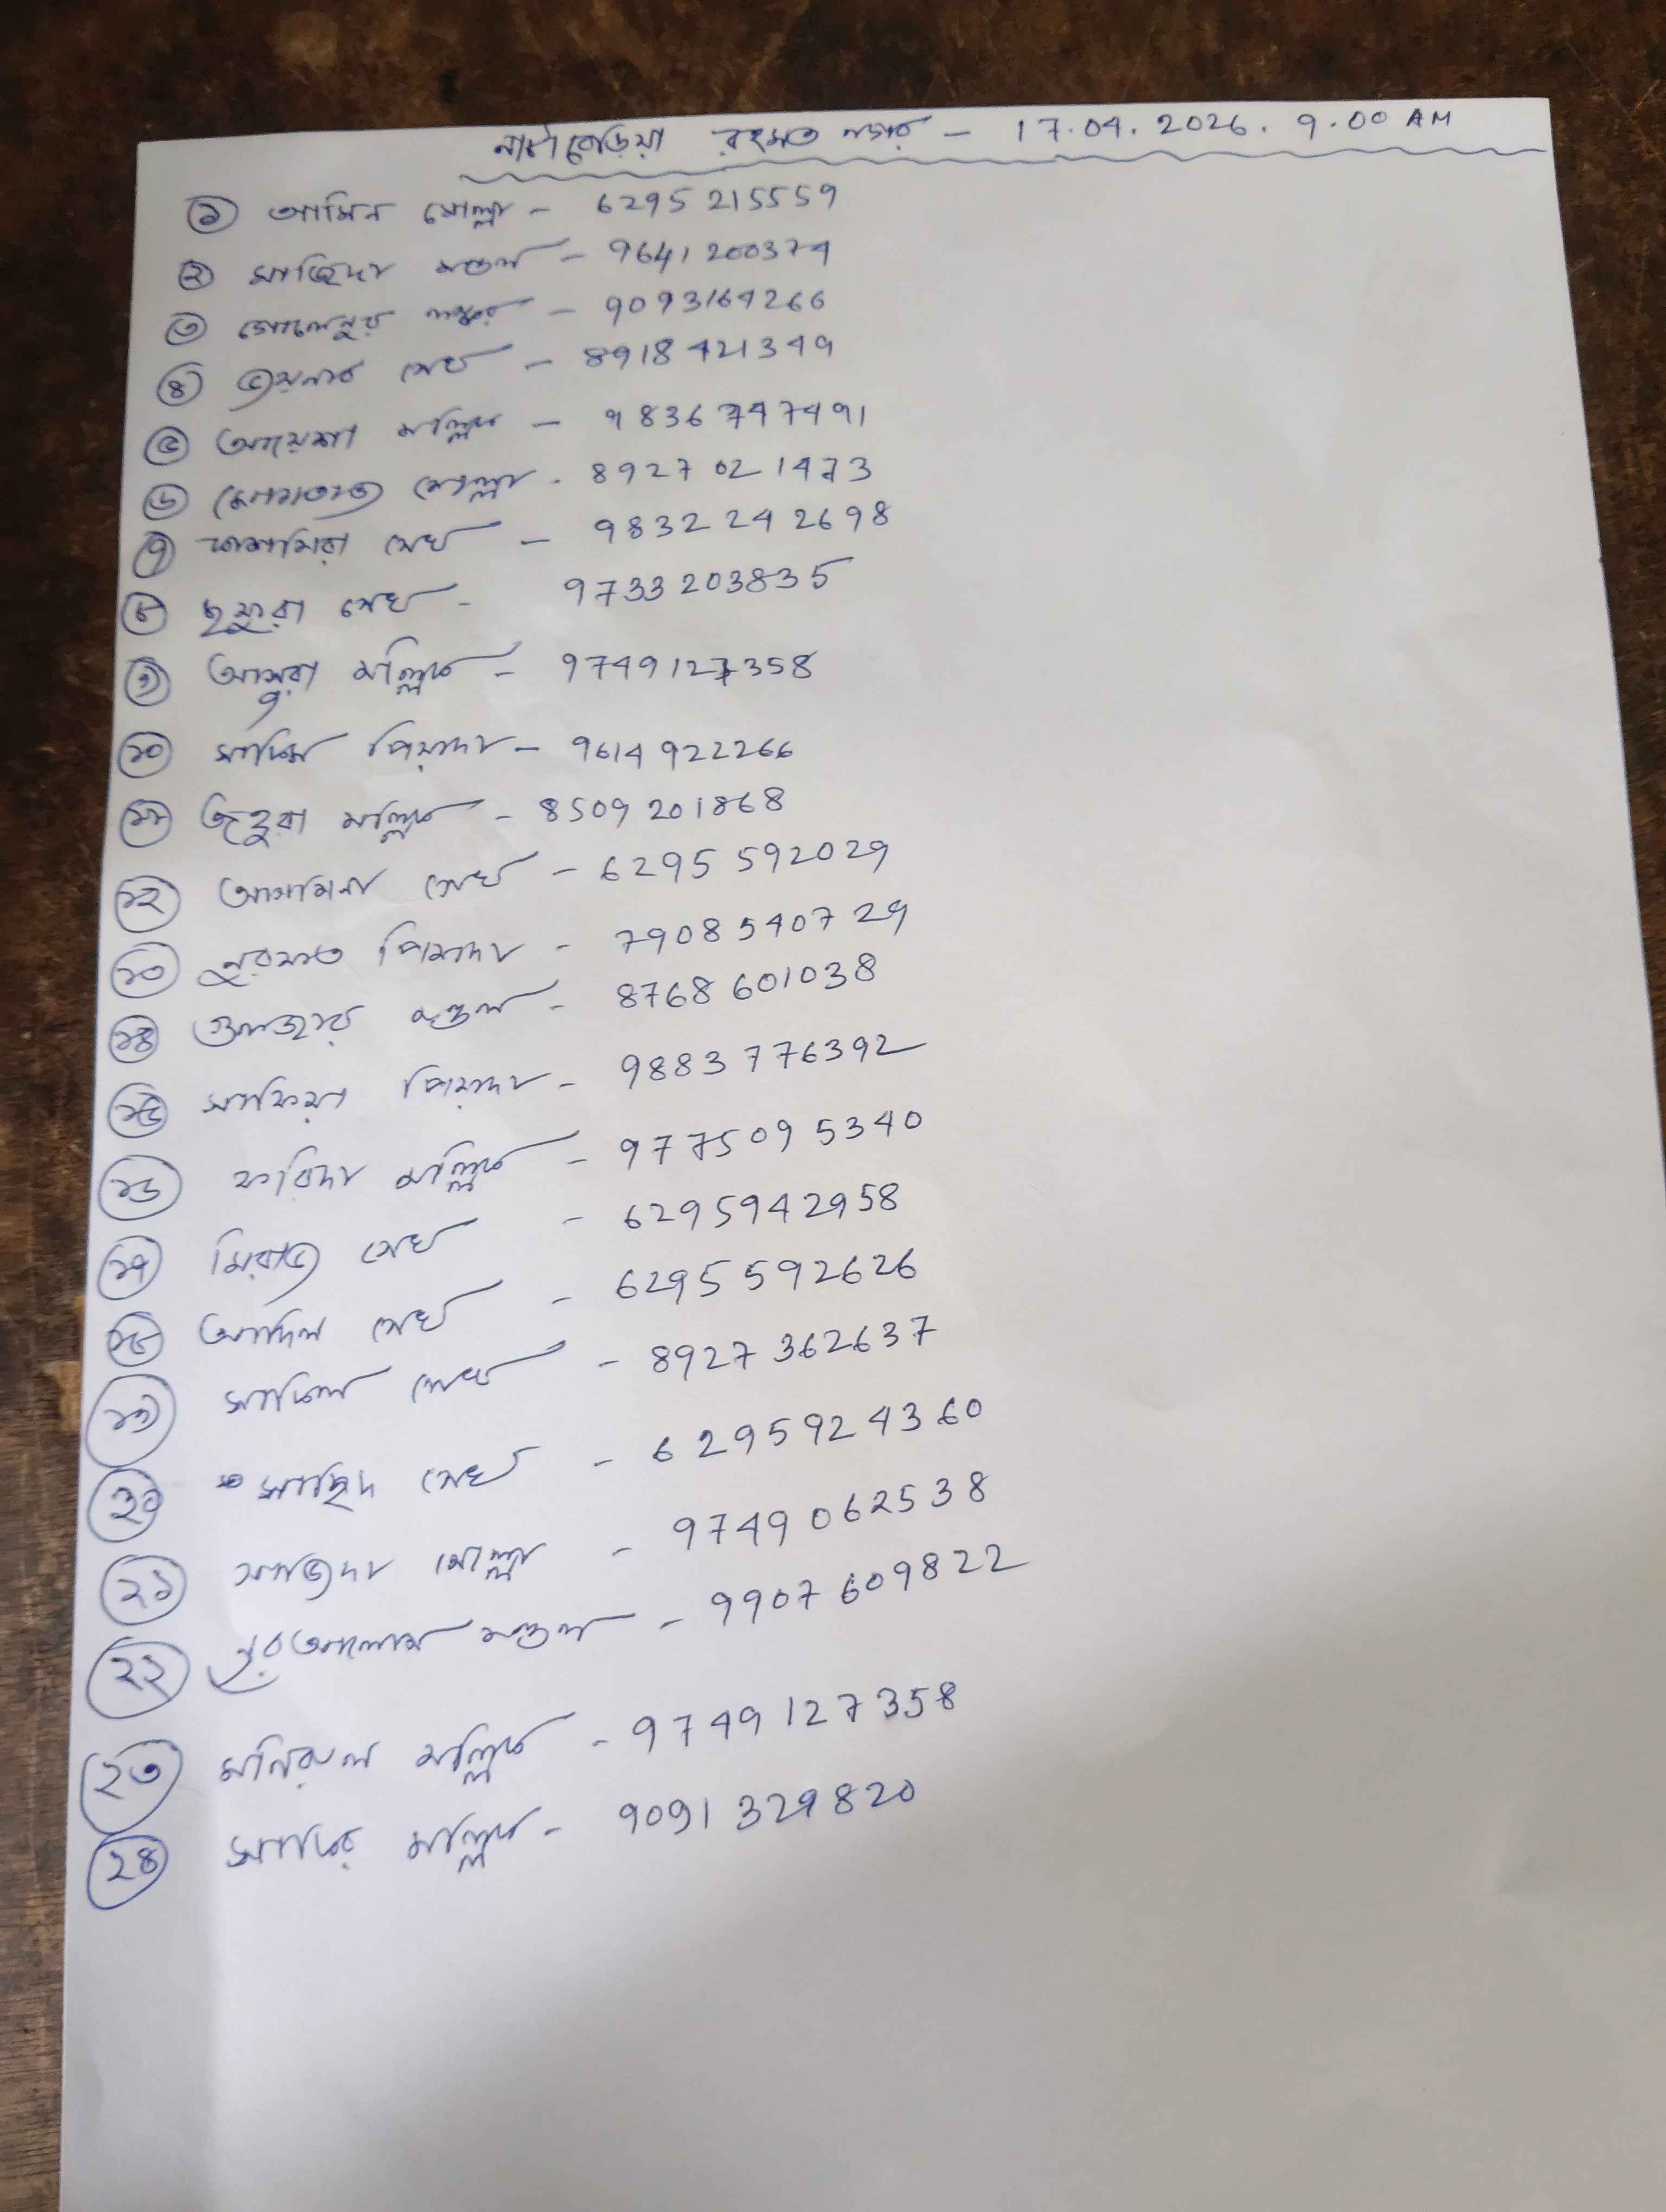 নাটাবেড়িয়া রহমত নগর - 17.04.2026. 9.00 AM
১ আমিন মোল্লা - 6295 215559
২ মাজিদা মণ্ডল - 9641 200374
৩ গোলেনুর লস্কর - 9093164266
৪ শেখ - 8918 421349
৫ আয়েশা মল্লিক - 9836 747491
৬ মোমতাজ মোল্লা - 8927 021473
৭ তাসমিরা শেখ - 98322 42698
৮ হুযুরা শেখ - 9733 203835
৯ আসুরা মল্লিক - 9749127358
১০ সাদ্দিম পিয়াদা - 9614 922266
১১ জহুরা মল্লিক - 8509 201868
১২ আমামিনা শেখ - 6295 592029
১৩ নুরমত পিয়াদা - 79085407 29
১৪ গুলজার মণ্ডল - 8768 601038
১৫ সাফিয়া পিয়াদা - 9883 776392
১৬ ফরিদা মল্লিক - 9775095340
১৭ মিরাজ শেখ - 6295942958
১৮ আদিল শেখ - 6295 592626
১৯ শেখ - 8927 362637
২০ সাহিদ শেখ - 6295924360
২১ সাজিদা মোল্লা - 9749 062538
২২ নুরআলোম মণ্ডল - 9907 609822
২৩ মনিরুল মল্লিক - 9749 127358
২৪ মল্লিক - 9091 329820